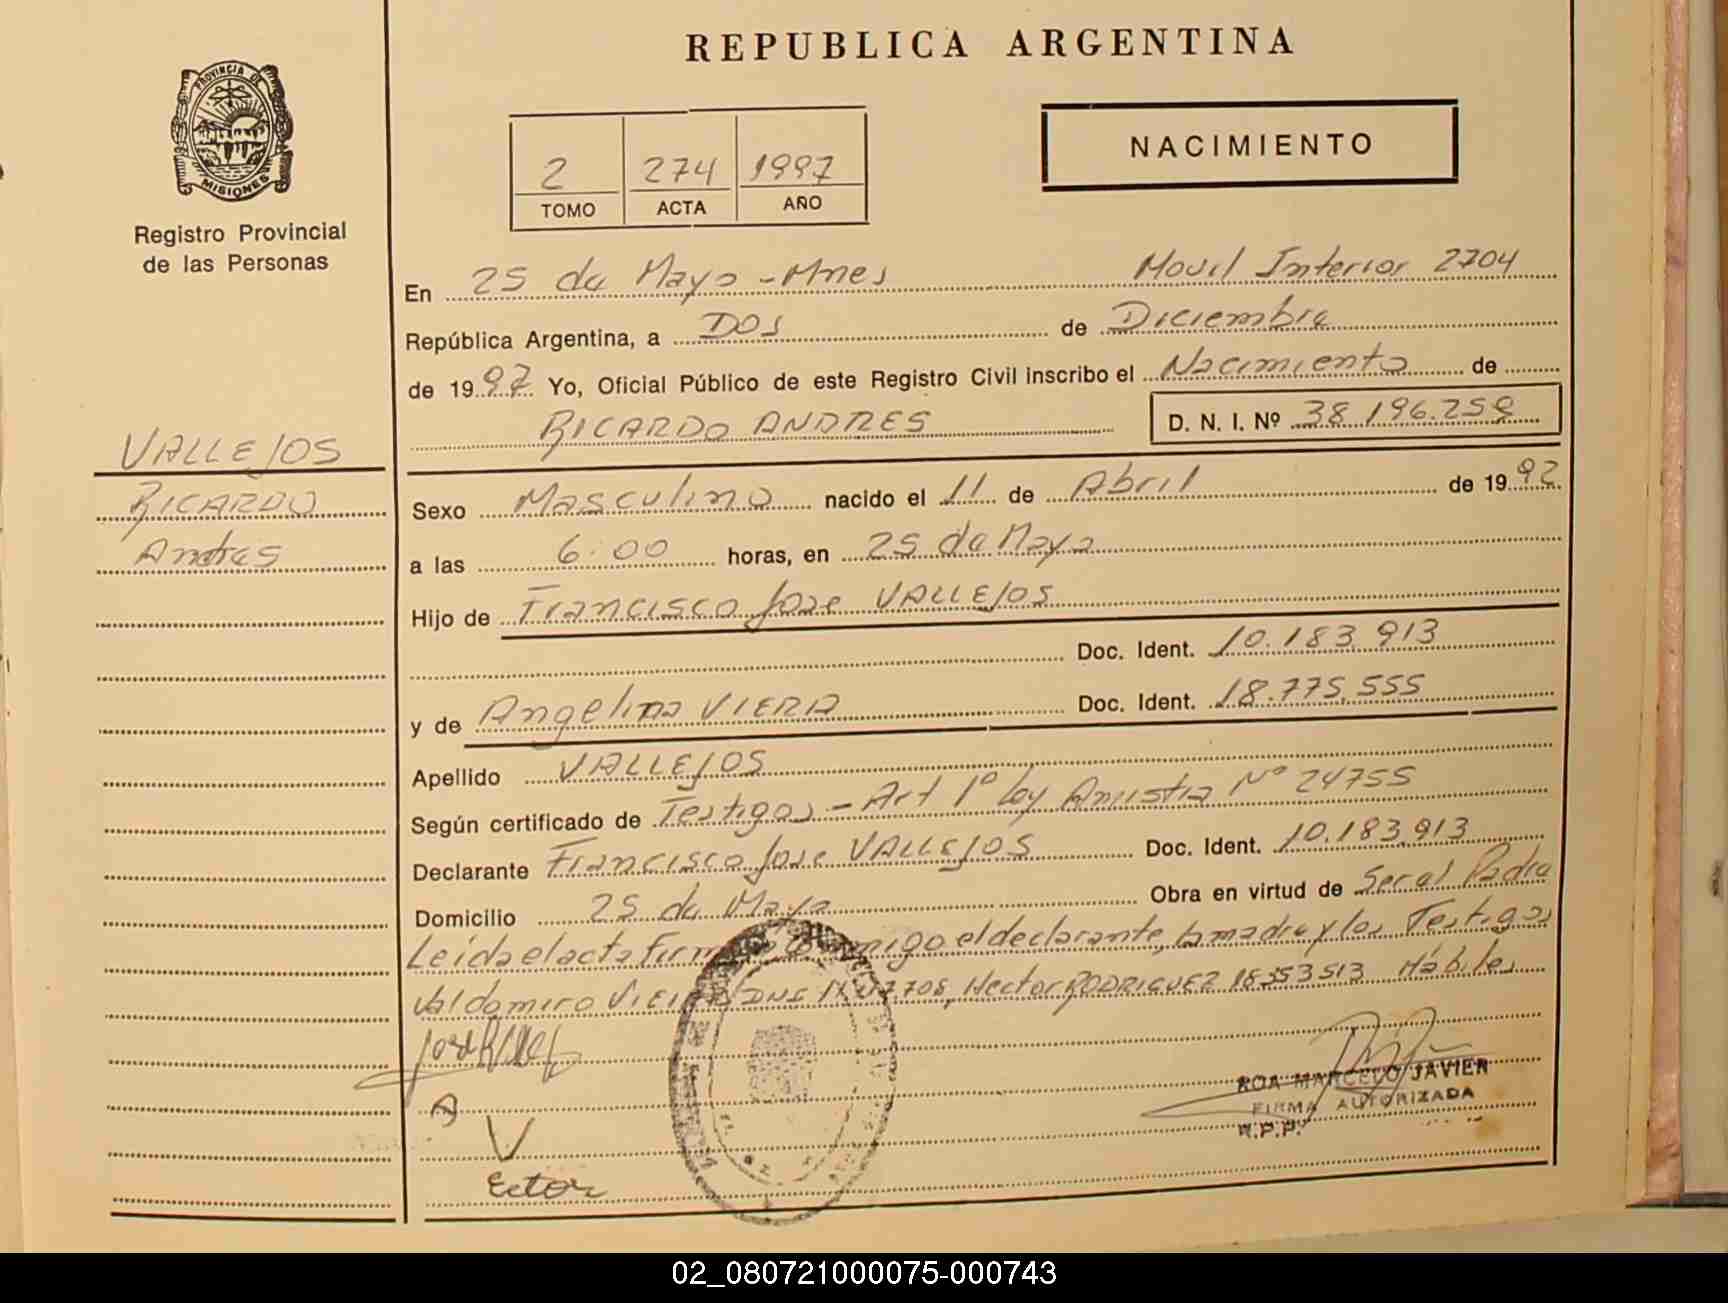 REPUBLICA ARGENTINA
PROVINCIA DE
MISIONES
Registro Provincial
de las Personas
2 274 1997
TOMO ACTA AÑO
NACIMIENTO
En 25 de Mayo - Mnes Movil Interior 2704
República Argentina, a DOS de Diciembre
de 1997 Yo, Oficial Público de este Registro Civil inscribo el Nacimiento de
RICARDO ANDRES D. N. I. Nº 38.196.258
VALLEJOS
RICARDO
Andres
Sexo Masculino nacido el 11 de Abril de 1992
a las 6:00 horas, en 25 de Mayo
Hijo de Francisco Jose VALLEJOS
Doc. Ident. 10.183.913
y de Angelina VIERA Doc. Ident. 18.775.555
Apellido VALLEJOS
Según certificado de Testigos - Art 1º Ley Amistia Nº 24755
Declarante Francisco Jose VALLEJOS Doc. Ident. 10.183.913
Domicilio 25 de Mayo Obra en virtud de Ser el Padre
Leida el acta Firman conmigo el declarante, la madre y los Testigos
Valdomiro DNI Hector RODRIGUEZ 18353513 Hábiles
A
V
Ector
ROA MARCELO JAVIER
FIRMA AUTORIZADA
R.P.P.
02_080721000075-000743